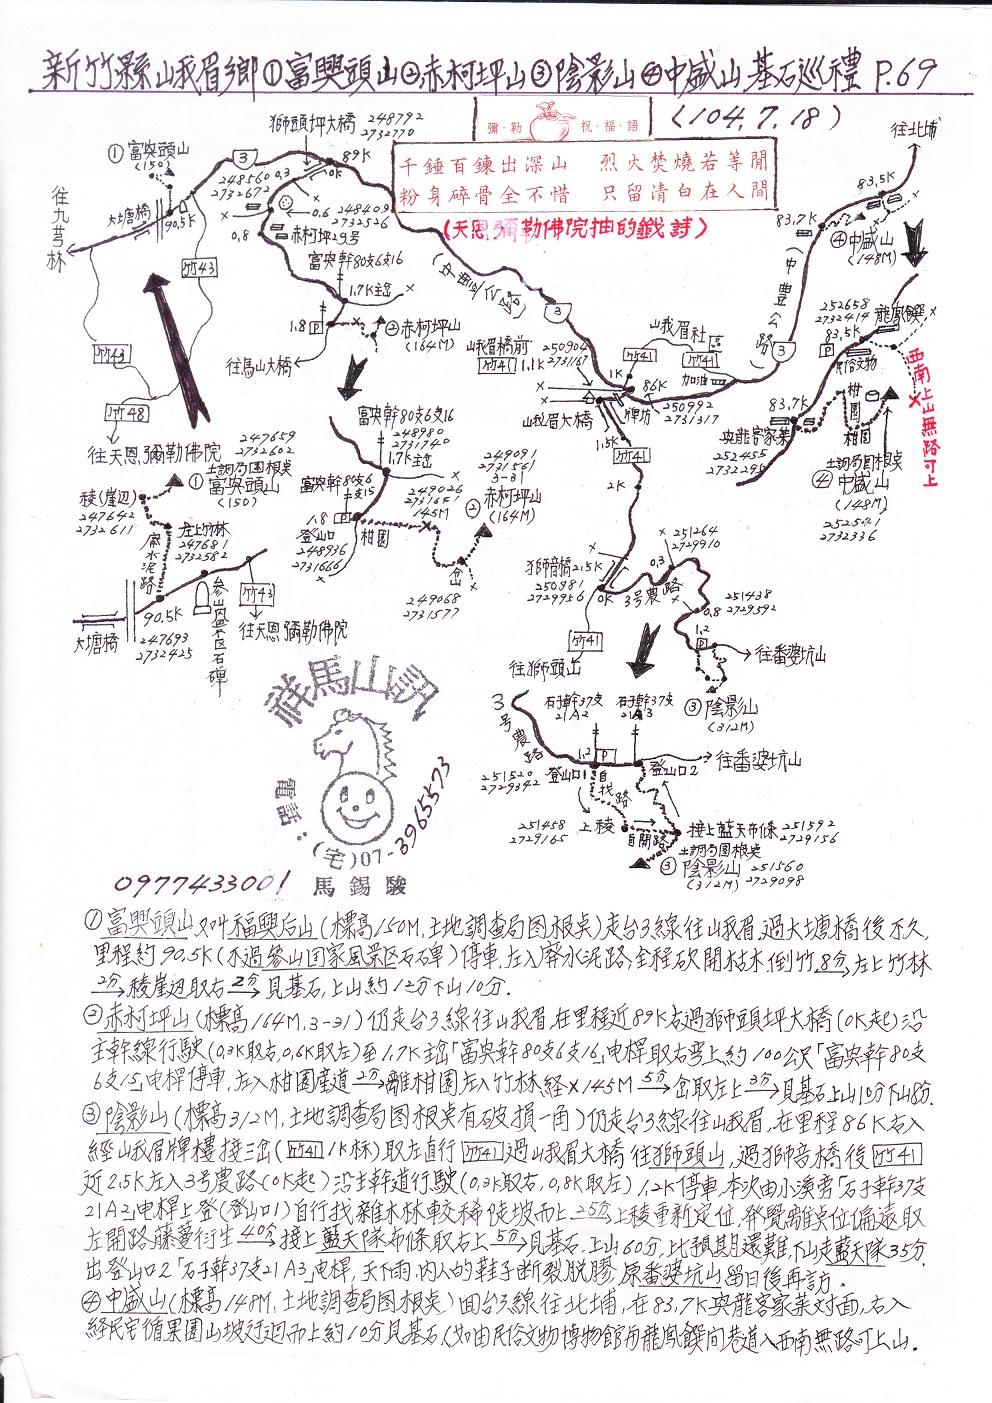 新竹縣峨眉鄉①富興頭山②赤柯坪山③陰影山④中盛山 基石巡禮 P.69
(104.7.18)
彌·勒 祝·福·語
千錘百鍊出深山 烈火焚燒若等閒
粉身碎骨全不惜 只留清白在人間
(天恩彌勒佛院抽的籤詩)
往北埔
獅頭坪大橋 248792
2732770
①富興頭山
(150)
3
89K
0K
0.3
248560
2732672
往九芎林
大塘橋
90.5K
0.6
248409
2732526
0.8
赤柯坪29号
富央幹80支6支16
1.7K主岔
1.8 P
②赤柯坪山
(164M)
往馬山大橋
竹43
竹43
竹48
往天恩彌勒佛院
(中豐公路)
3
83.5K
83.7K
④中盛山
(148M)
(中豐公路)
3
峨眉社
竹41
竹41
峨眉橋前
竹41 1.1K
250904
2731167
1K
86K
加油
牌坊
250992
2731317
峨眉大橋
1.5K
竹41
2K
252658
2732414
龍鳳饌
83.5K
P
民俗文物
柑園
柑園
西南上山無路可上
83.7K
央龍客家菜
252455
2732295
土調局圖根点
④中盛山
(148M)
252541
2732336
247659
2732602
土調局圖根点
①富央頭山
(150)
稜(崖辺)
247642
2732611
左上竹林
247681
2732582
廢水泥路
90.5K
247693
2732425
大塘橋
參山風景区石碑
竹43
往天恩彌勒佛院
富央幹80支6支16
248980
2731740
1.7K主岔
富央幹80支6
支15
1.8 P
登山口
248936
2731666
柑園
249026
2731651
145M
249091
2731561
3-31
②赤柯坪山
(164M)
岔
249068
2731577
獅音橋 2.5K
250981
2729956
0K
3号農路
0.3
251264
2729910
251438
2729592
0.8
1.2
P
往番婆坑山
③陰影山
(312M)
竹41
往獅頭山
3号農路
石子幹37支
21A2
石子幹37支
21A3
1.2 P
251520
2729342
登山口1
登山口2
往番婆坑山
自找路
251458
2729165
上稜
自開路
接上藍天布條 251592
2729156
土調局图根点
③陰影山 251560
(312M) 2729098
祥馬山訊
電話：(宅)07-3965573
0977433001 馬錫駿
①富興頭山又叫福興后山(標高150M,土地調查局图根点)走台3線往峨眉,過大塘橋後不久,
里程約90.5K(不過參山国家風景区石碑)停車,左入廢水泥路,全程砍開枯木倒竹,8分,左上竹林
2分→稜崖迎取右2分→見基石,上山約12分下山10分.
②赤柯坪山(標高164M,3-31)仍走台3線往峨眉,在里程近89K右過獅頭坪大橋(0K起)沿
主幹線行駛(0.3K取右,0.6K取左)至1.7K主岔「富央幹80支6支16」电桿取右弯上約100公尺「富央幹80支
6支15」电桿停車,左入柑園產道2分→離柑園左入竹林,經X145M 5分→岔取左上3分→見基石上山10分下山8分.
③陰影山(標高312M,土地調查局图根点有破損一角)仍走台3線往峨眉,在里程86K右入
經峨眉牌樓接三岔(竹41 1K杯)取左直行竹41過峨眉大橋往獅頭山,過獅音橋後竹41
近2.5K左入3号農路(0K起)沿主幹道行駛(0.3K取右,0.8K取左)1.2K停車,本次由小溪旁「石子幹37支
21A2」电桿上登(登山口1)自行找雜木林較稀徒坡而上25分→上稜重新定位,發覺離点位偏遠取
左開路,藤蔓衍生40分→接上藍天隊布條取右上5分→見基石,上山60分,比預期還難,下山走藍天隊35分
出登山口2「石子幹37支21A3」电桿,天下雨,内人的鞋子断裂脱膠,原番婆坑山留日後再訪.
④中盛山(標高148M,土地調查局图根点)回台3線往北埔,在83.7K央龍客家菜対面,右入
經民宅循果園山坡行迴而上約10分見基石(如由民俗文物博物館旁龍鳳饌間巷道入西南無路可上山.